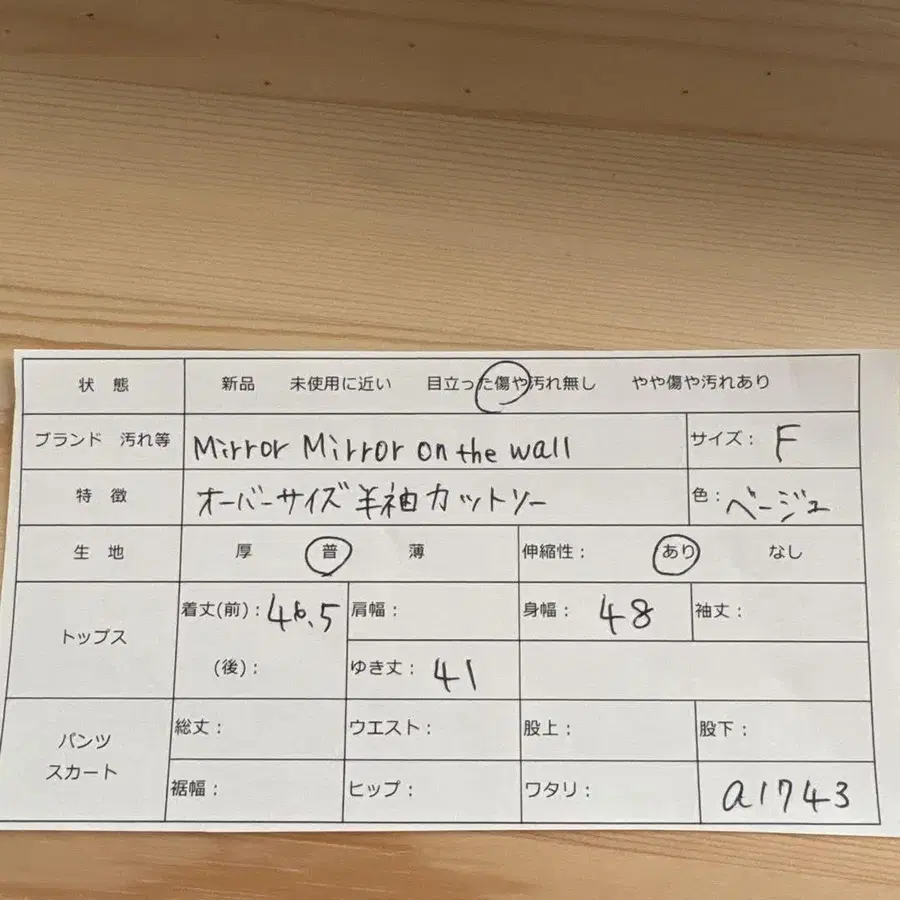 状 態 新品 未使用に近い 目立った傷や汚れ無し やや傷や汚れあり
ブランド 汚れ等 Mirror Mirror on the wall サイズ: F
特 徴 オーバーサイズ半袖カットソー 色: ベージュ
生 地 厚 普 薄 伸縮性: あり なし
トップス 着丈(前): 46.5 肩幅: 身幅: 48 袖丈:
(後): ゆき丈: 41
パンツ スカート 総丈: ウエスト: 股上: 股下:
裾幅: ヒップ: ワタリ: a1743